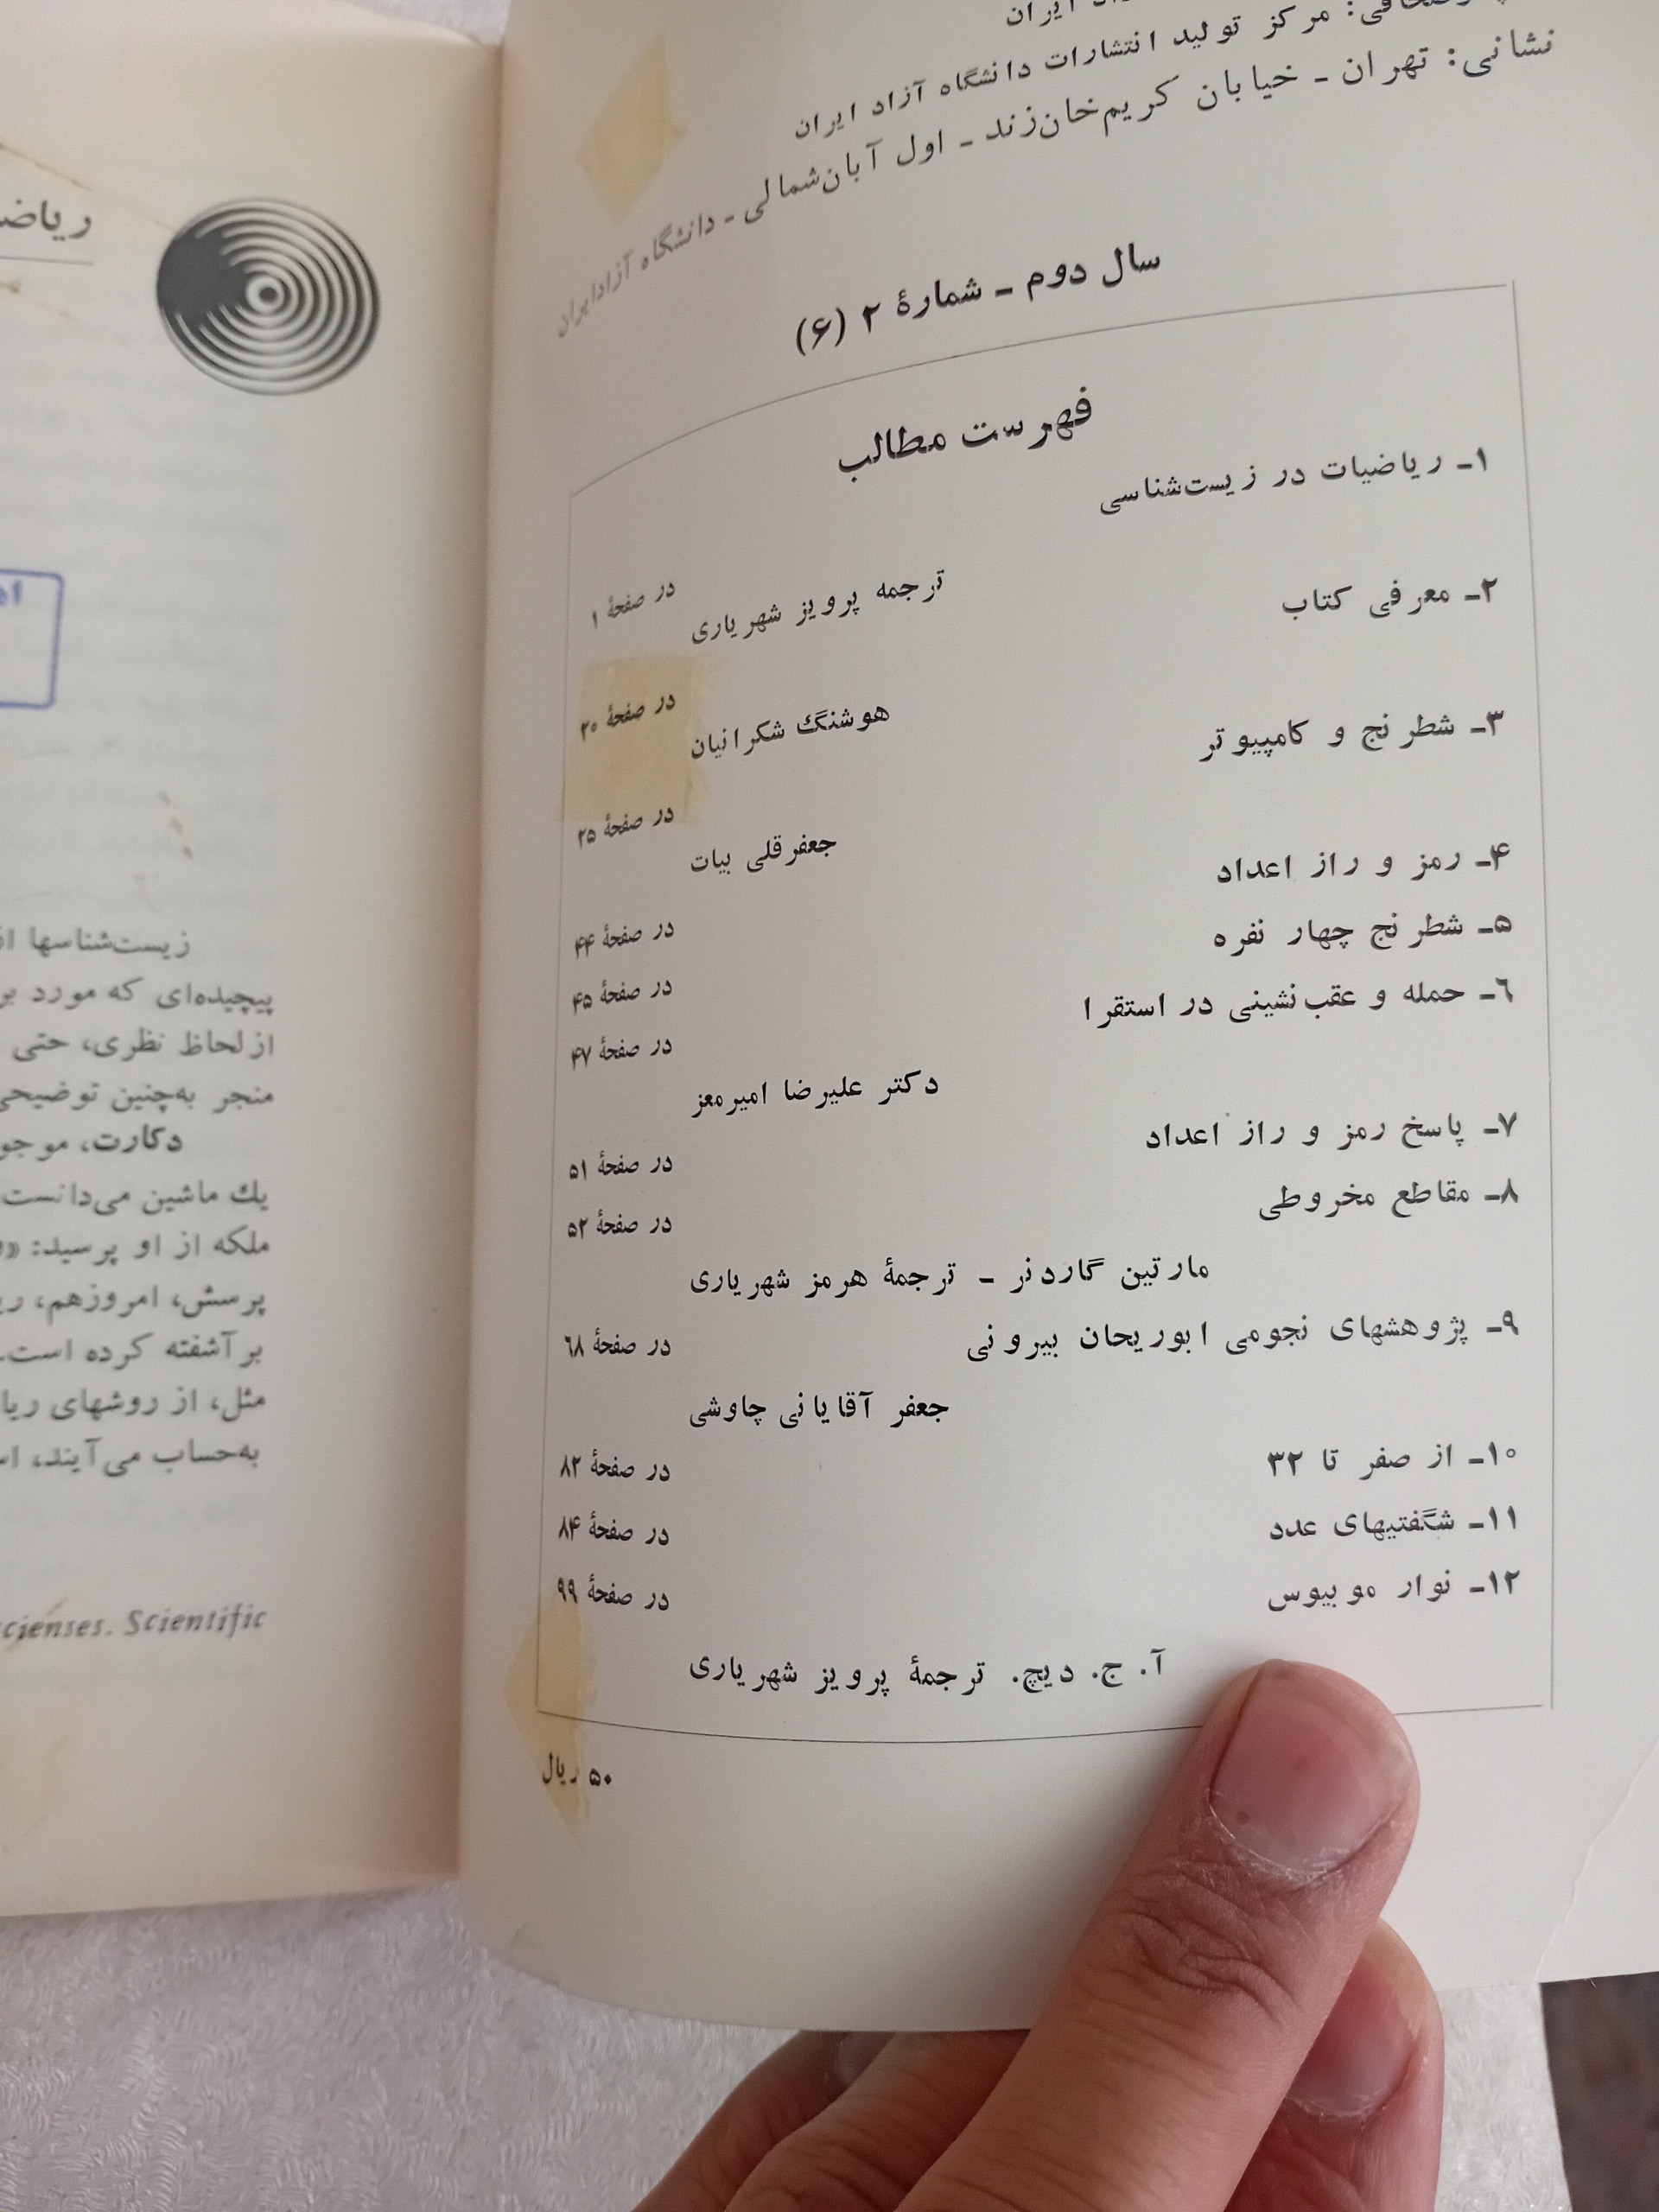 ایران
مرکز تولید انتشارات دانشگاه آزاد ایران
نشانی: تهران ـ خیابان کریم‌خان‌زند ـ اول آبان‌شمالی ـ دانشگاه آزادایران
سال دوم ـ شمارهٔ ۲ (۶)
فهرست مطالب
۱ـ ریاضیات در زیست‌شناسی
ترجمه پرویز شهریاری در صفحهٔ ۱
۲ـ معرفی کتاب
هوشنگ شکرانیان در صفحهٔ ۲۰
۳ـ شطرنج و کامپیوتر
جعفرقلی بیات در صفحهٔ ۲۵
۴ـ رمز و راز اعداد در صفحهٔ ۴۴
۵ـ شطرنج چهار نفره در صفحهٔ ۴۵
۶ـ حمله و عقب‌نشینی در استقرا در صفحهٔ ۴۷
دکتر علیرضا امیرمعز
۷ـ پاسخ رمز و راز اعداد در صفحهٔ ۵۱
۸ـ مقاطع مخروطی در صفحهٔ ۵۲
مارتین گاردنر ـ ترجمهٔ هرمز شهریاری
۹ـ پژوهشهای نجومی ابوریحان بیرونی در صفحهٔ ۶۸
جعفر آقایانی چاوشی
۱۰ـ از صفر تا ۳۲ در صفحهٔ ۸۲
۱۱ـ شگفتیهای عدد در صفحهٔ ۸۴
۱۲ـ نوار موبیوس در صفحهٔ ۹۹
آ. ج. دیچ. ترجمهٔ پرویز شهریاری
۵۰ ریال
زیست‌شناسها
پیچیده‌ای که مورد
ازلحاظ نظری، حتی
منجر به‌چنین توضیحی
دکارت،
یك ماشین می‌دانست
ملکه از او پرسید:
پرسش، امروزهم،
برآشفته کرده است.
مثل، از روشهای
به‌حساب می‌آیند،
Scientific